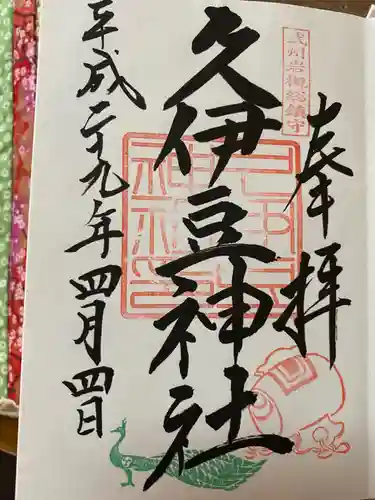 奉拝
武州岩槻総鎮守
久伊豆神社
平成二十九年四月四日